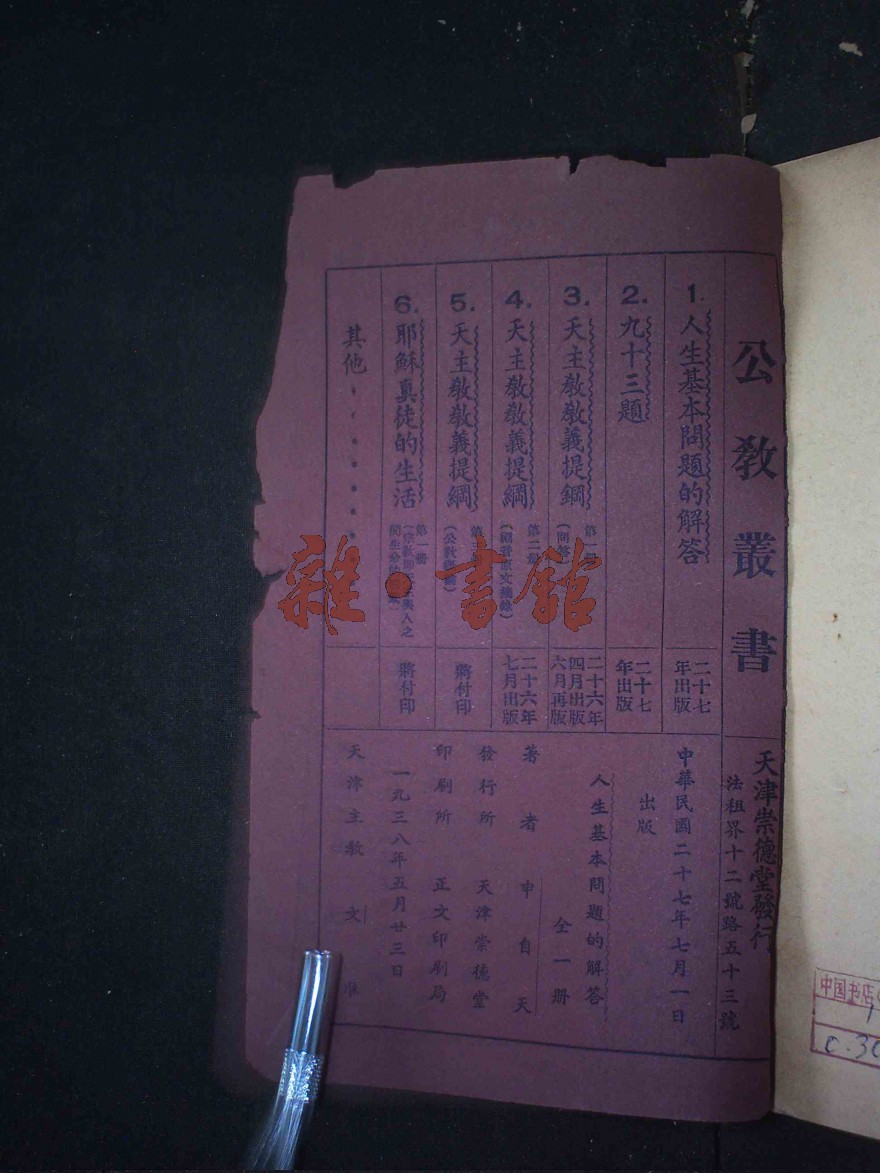 公教叢書
天津崇德堂發行
法租界十二號路五十三號
1. 人生基本問題的解答
二十七年出版
2. 九十三題
二十七年出版
3. 天主教教義提綱
第一册
(問答)
二十六年四月出版
六月再版
4. 天主教教義提綱
第二册
二十六年七月出版
5. 天主教教義提綱
第
(公教
將付印
6. 耶穌真徒的生活
第一册
將付印
其他
中華民國二十七年七月一日
出版
人生基本問題的解答
全一册
著者 申自天
發行所 天津崇德堂
印刷所 正文印刷局
一九三八年五月廿三日
天津主教 文 准
雜·書館
中国书店